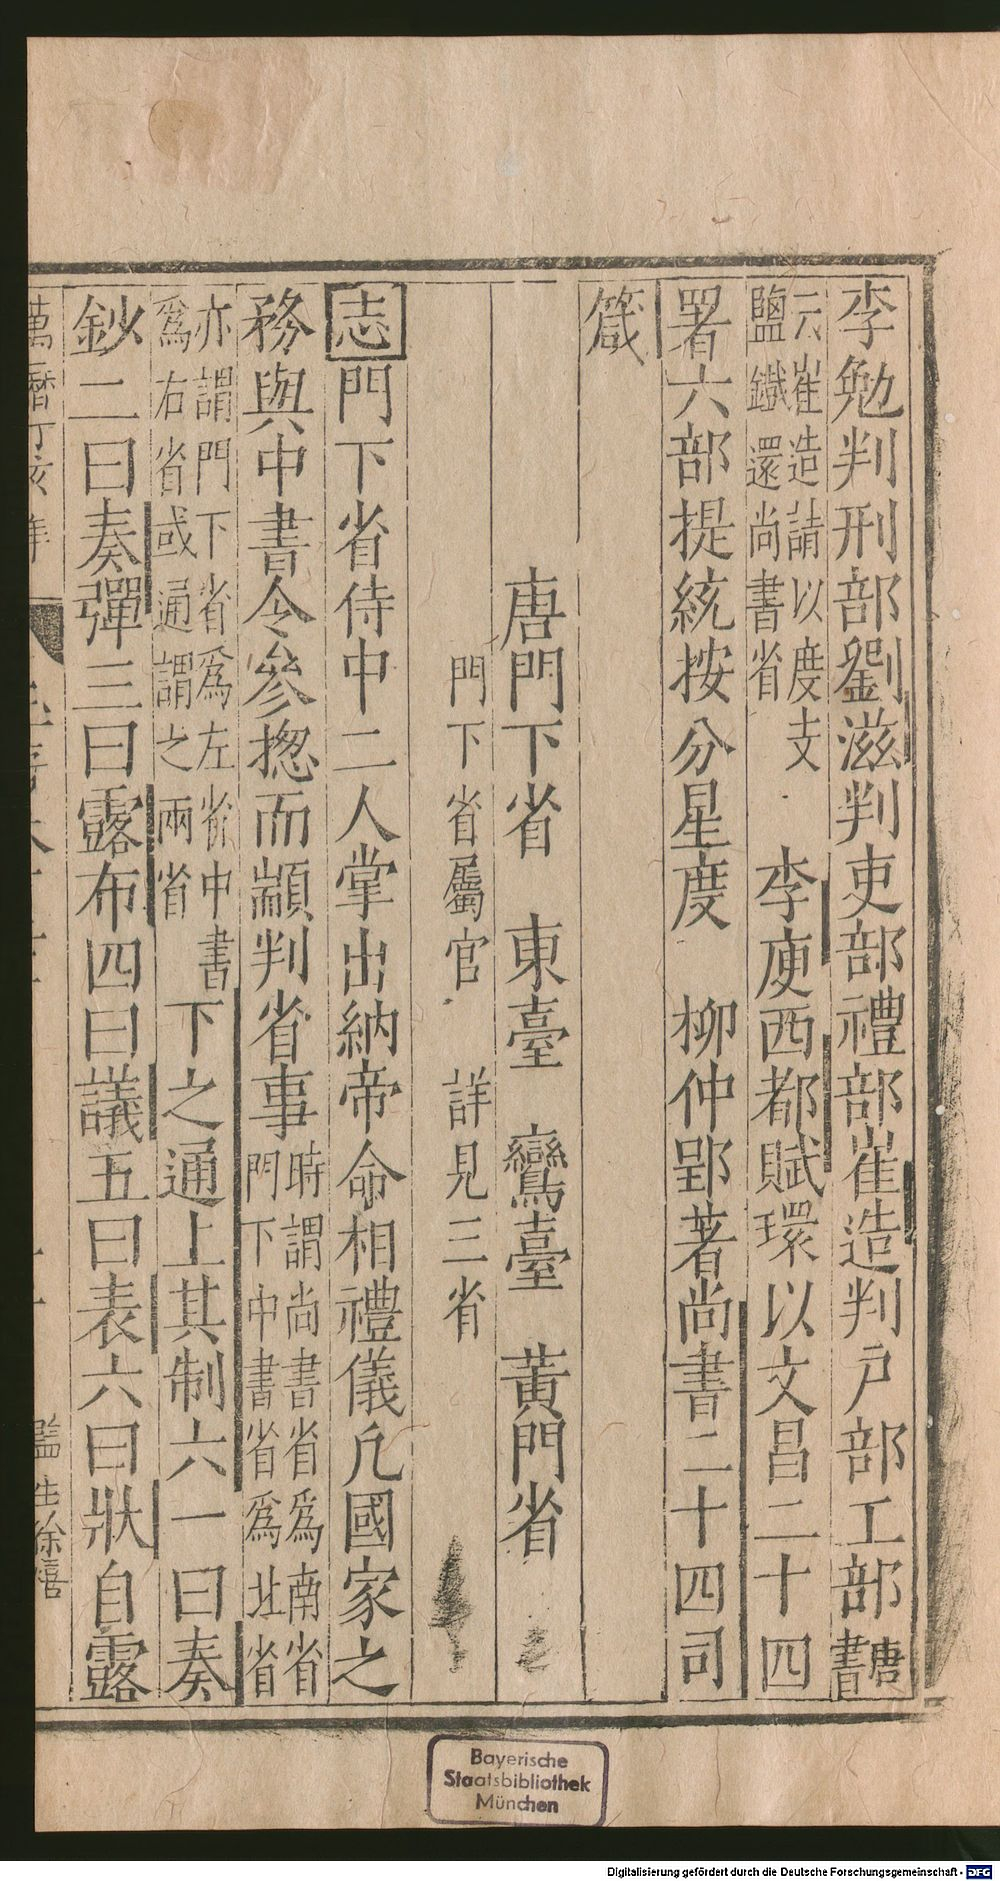 李勉判刑部劉滋判吏部禮部崔造判戶部工部唐書
云崔造請以度支鹽鐵還尚書省 李庾西都賦環以文昌二十四
署六部提統按分星度 柳仲郢著尚書二十四司
箴
唐門下省 東臺 鸞臺 黃門省
門下省屬官 詳見三省
志門下省侍中二人掌出納帝命相禮儀凡國家之
務與中書令參揔而顓判省事時謂尚書省爲南省門下中書省爲北省
亦謂門下省爲左省中書爲右省或通謂之兩省下之通上其制六一曰奏
鈔二曰奏彈三曰露布四曰議五曰表六曰狀自露
萬曆丁亥年
監生徐禧
Bayerische
Staatsbibliothek
München
Digitalisierung gefördert durch die Deutsche Forschungsgemeinschaft - DFG